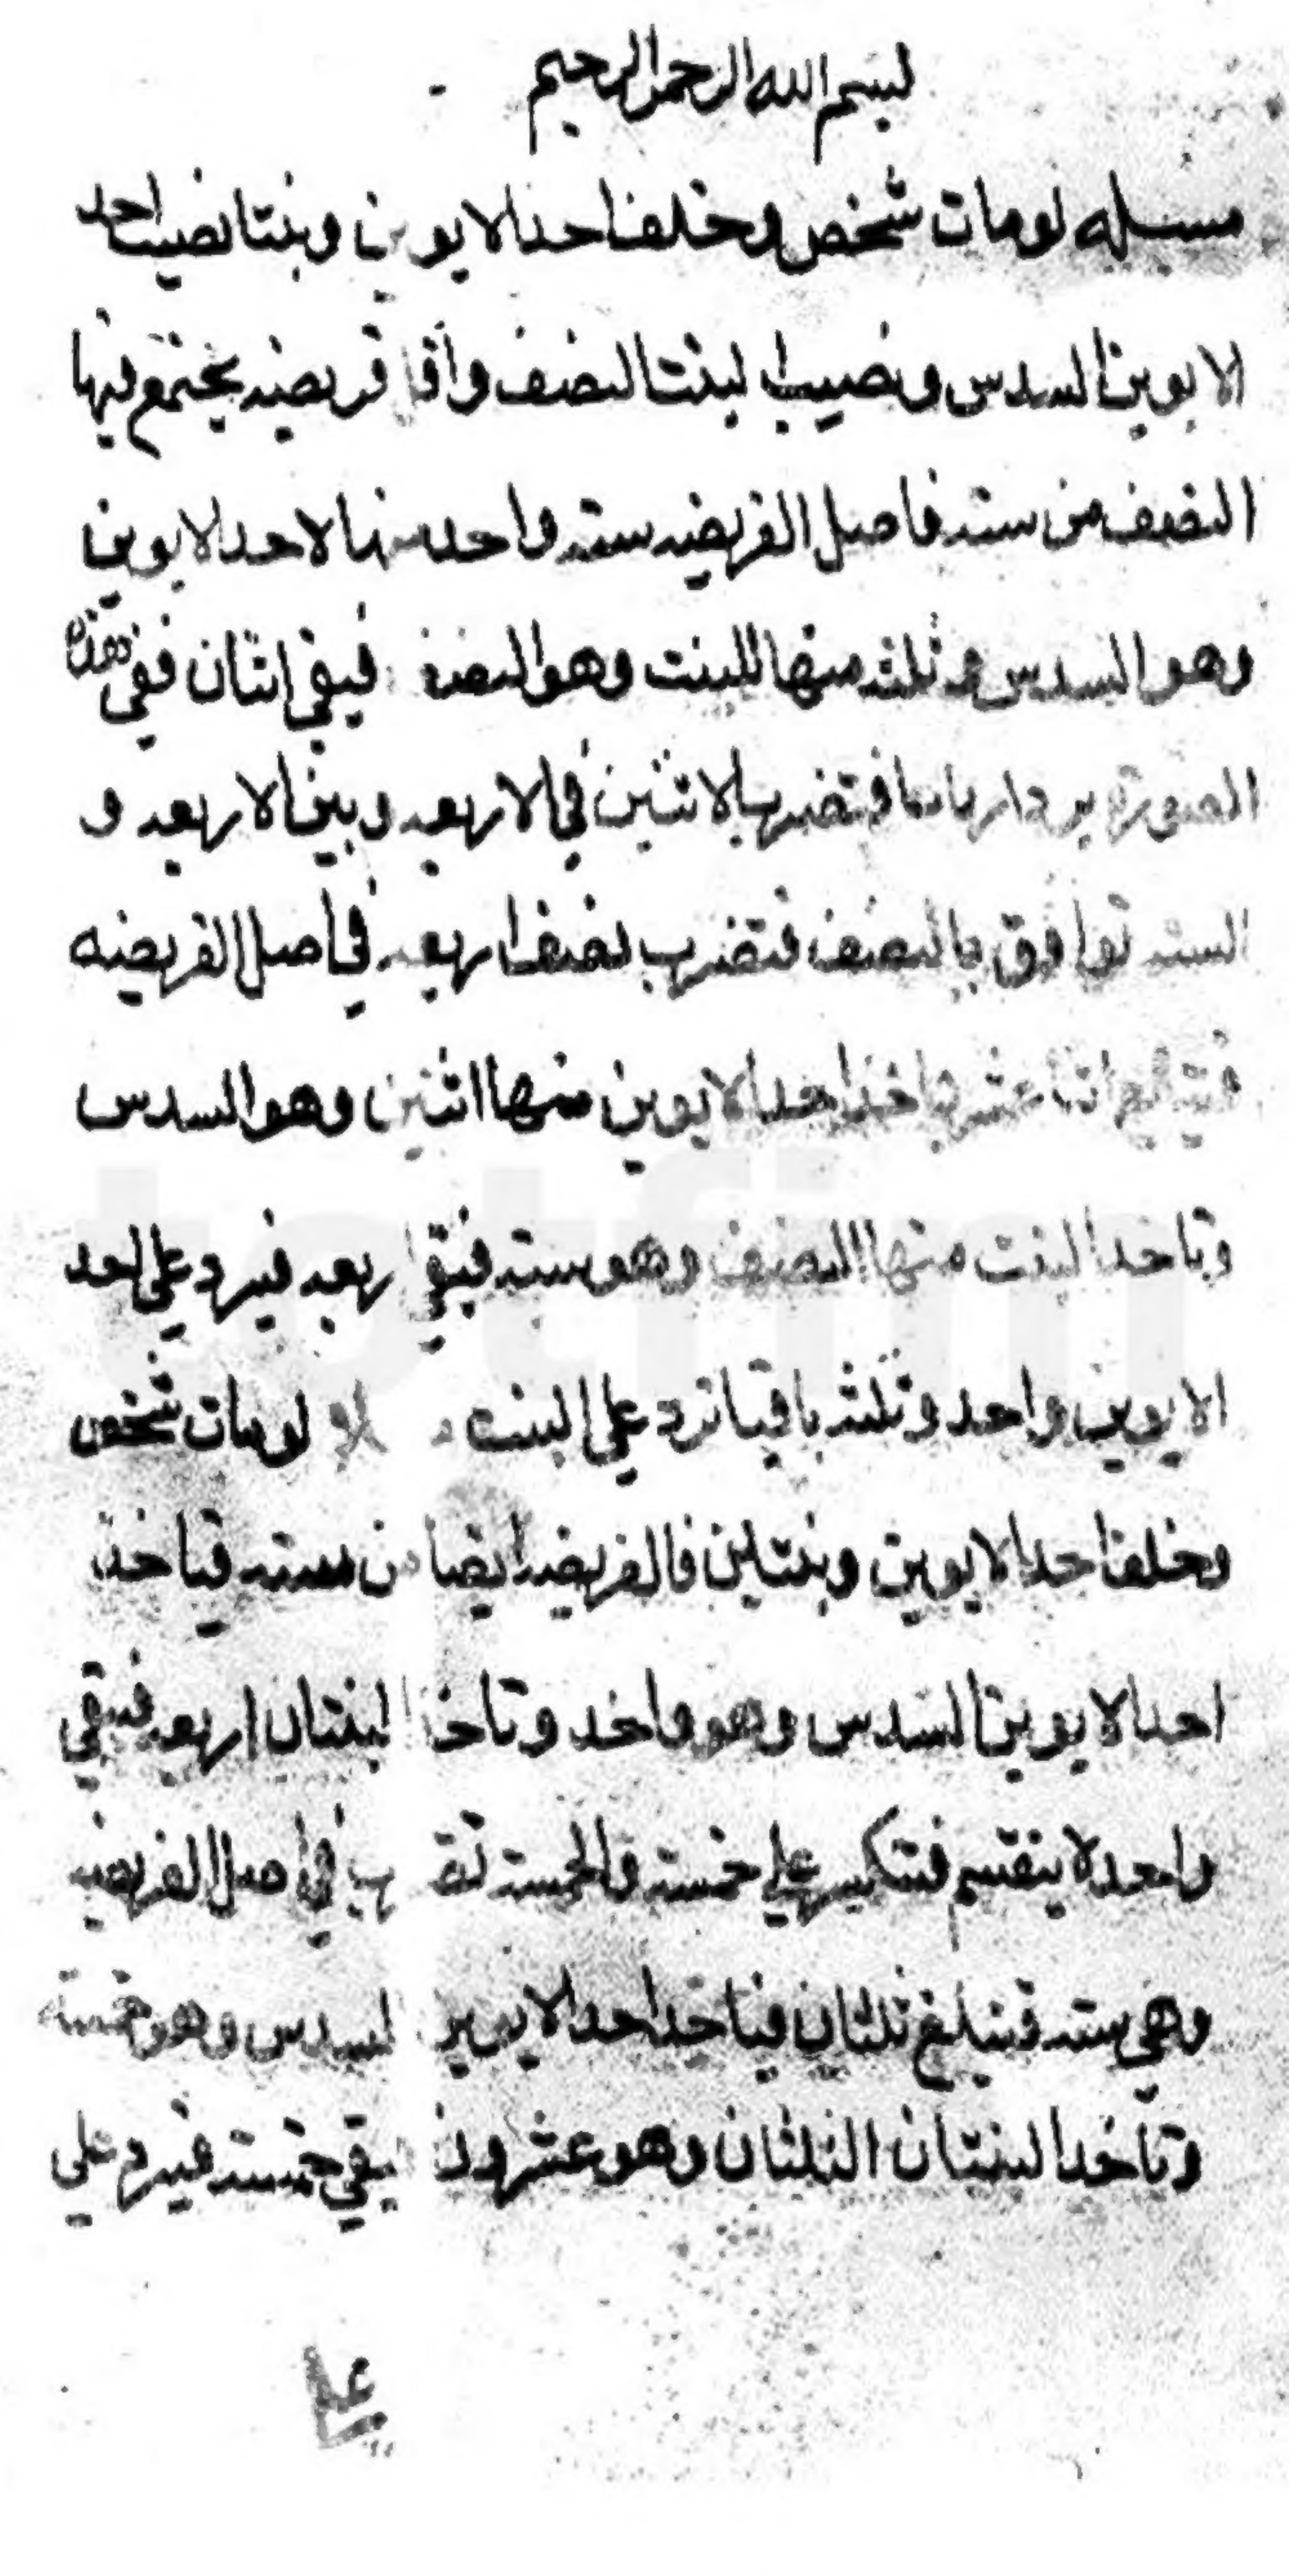 بسم الله الرحمن الرحيم
مسيله لومات شخص وخلف احد الابوين وبنتا نصيب احد
الابوين السدس ونصيب البنت النصف واقل فريضه يجتمع فيها
النصف من سته فاصل الفريضه سته واحد منها لاحد الابوين
وهو السدس وثلثه منها للبنت وهو النصف فيبقى اثنان ففي هذه
الصوره يرد ارباعا فتضرب الاثنين في الاربعه وبين الاربعه و
السته توافق بالنصف فتضرب نصف اربعه في اصل الفريضه
فتبلغ اثنا عشر ياخذ احد الابوين منها اثنين وهو السدس
وتاخد البنت منها النصف وهو سته فيبقى اربعه فيرد على احد
الابوين واحد وثلثه باقيا ترد على البنت لومات شخص
وخلف احد الابوين وبنتين فالفريضه ايضا من سته فياخذ
احد الابوين السدس وهو واحد وتاخذ البنتان اربعه فيبقى
واحد لا ينقسم فتنكسر على خمسة فالخمسة تضرب في اصل الفريضه
وهي سته فتبلغ ثلثان فياخذ احد الابوين السدس وهو خمسة
وتاخد البنتان الثلثان وهو عشرون يبقى خمسته فيرد على